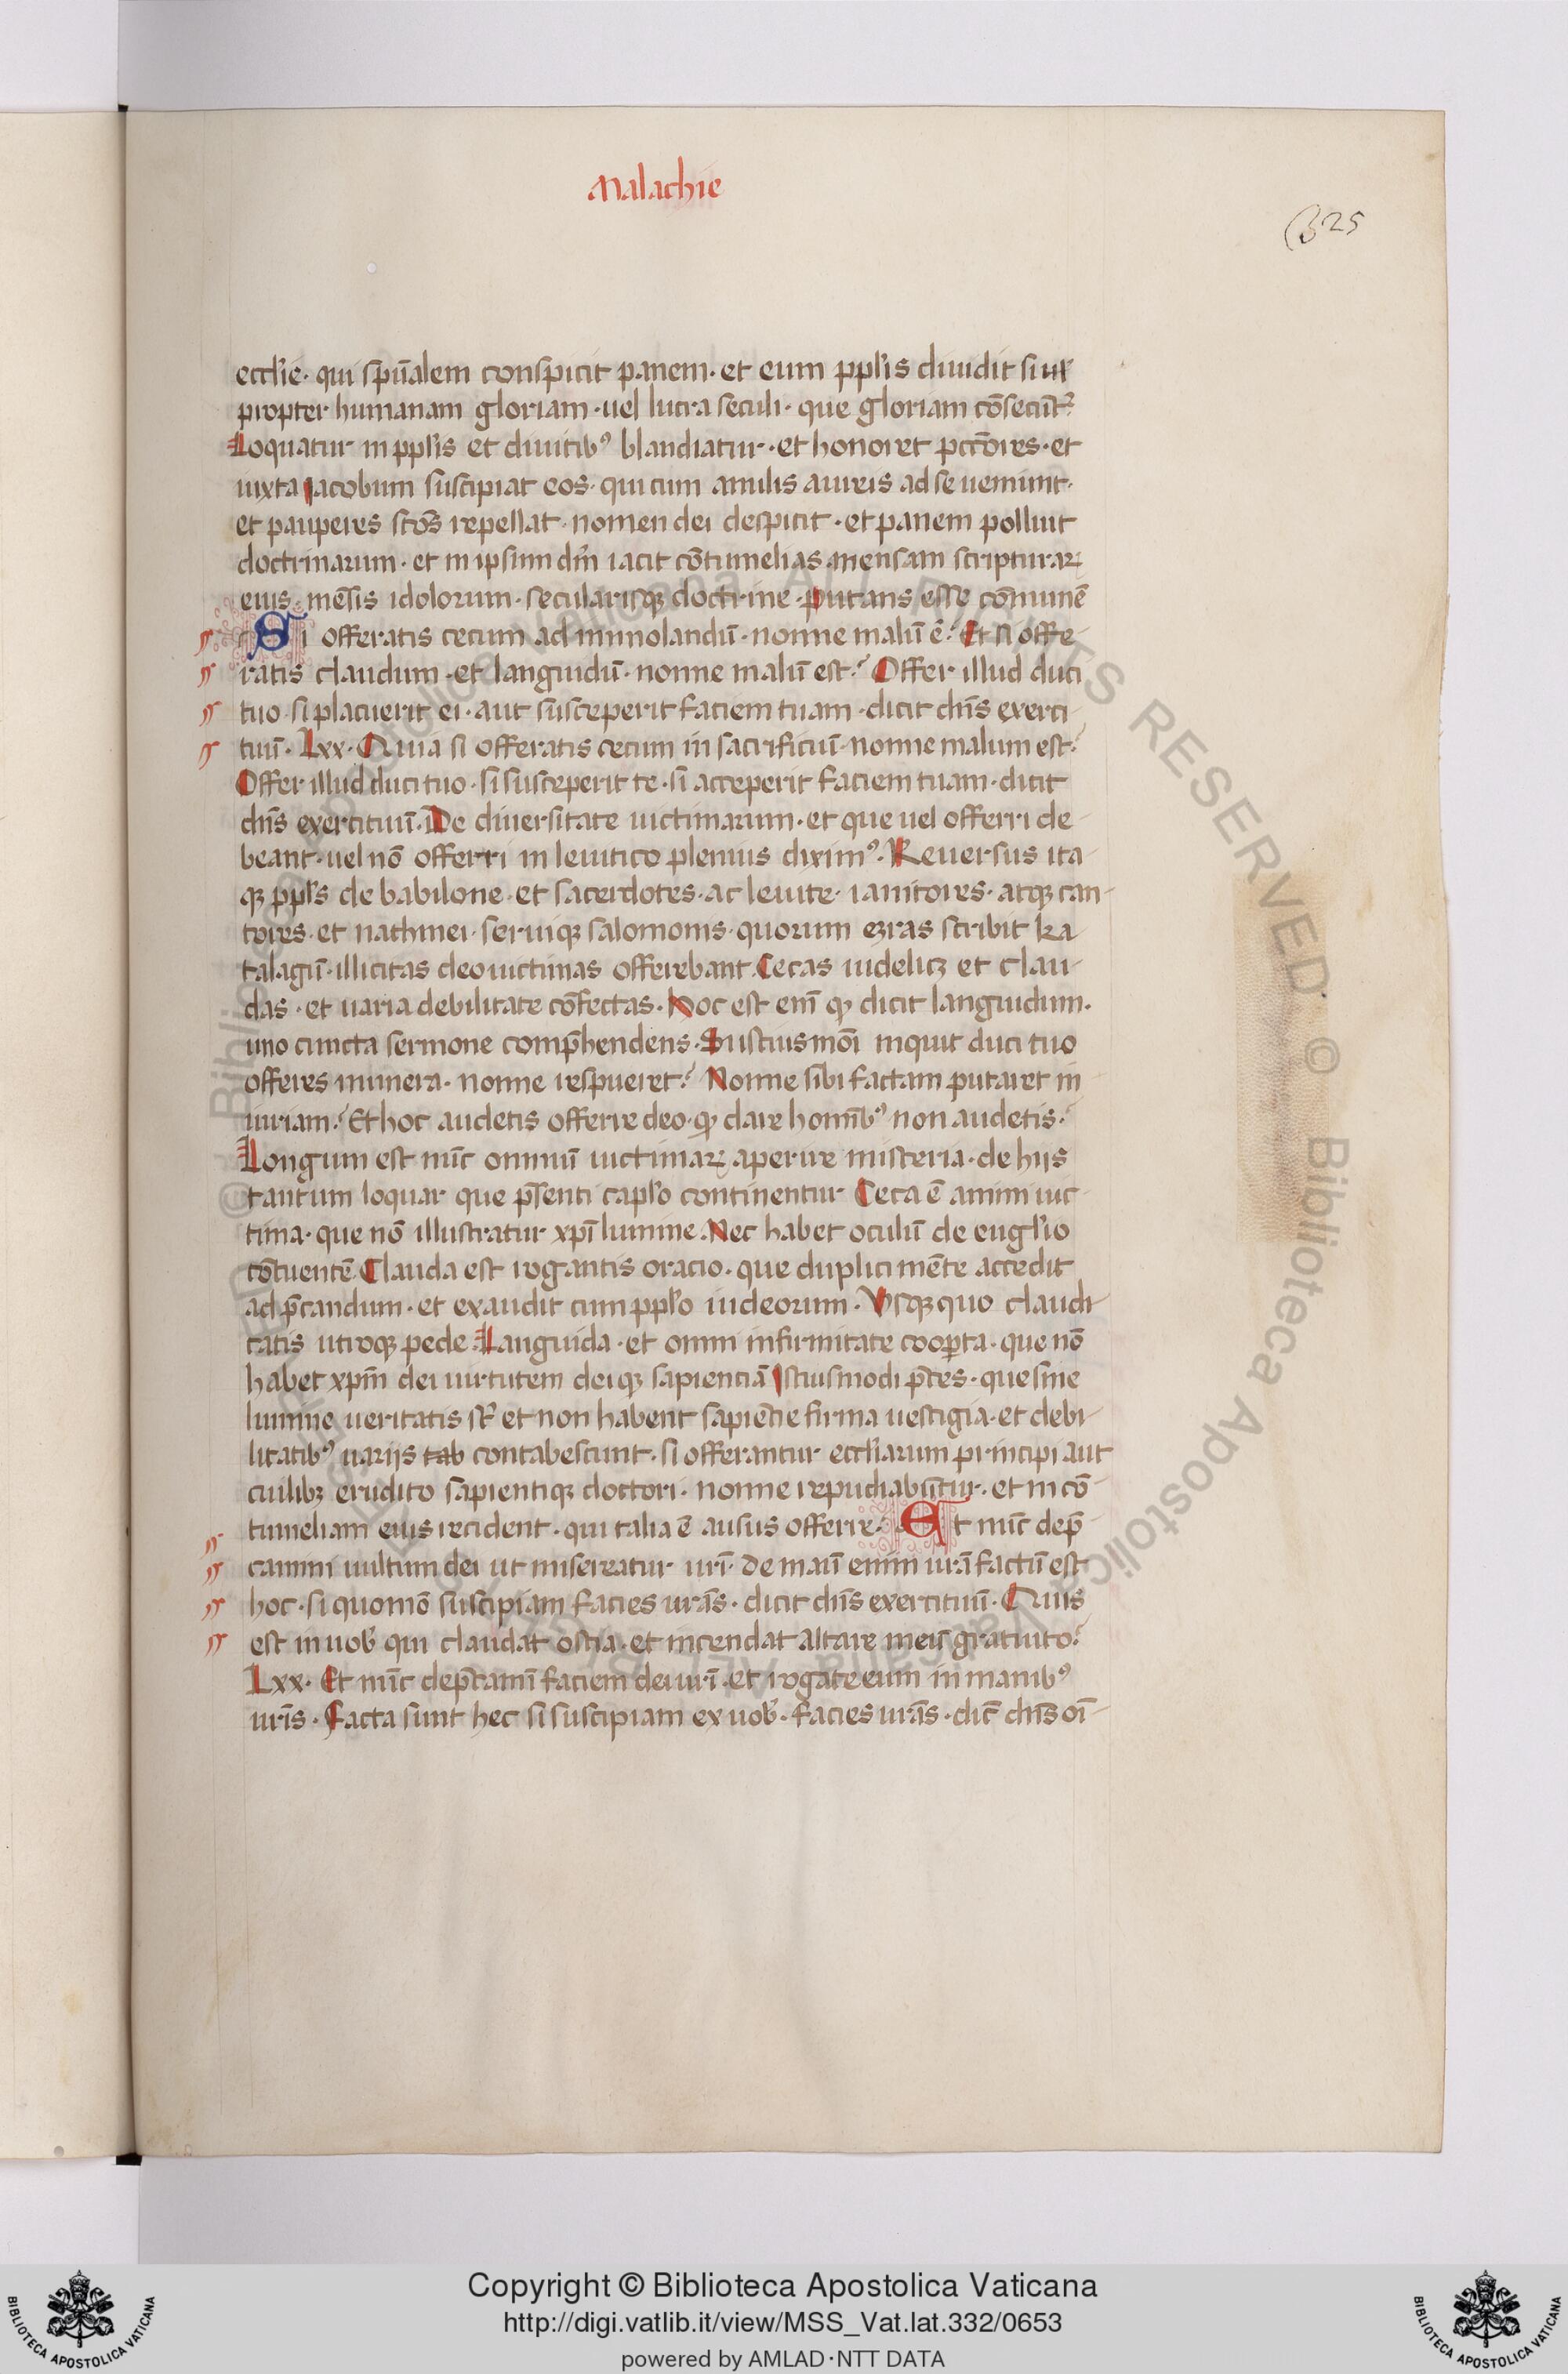 Malachie
325
eccłie· qui spũalem conspicit panem· et eum ppłis diuidit si ur
propter humanam gloriam· uel lucra seculi· que gloriam cõsecũt᷑
Loquatur in ppłis et diuitibꝰ blandiatur· et honoret pctõres· et
iuxta iacobum suscipiat eos· qui cum anulis aureis ad se ueniunt·
et pauperes scõs repellat· nomen dei despicit· et panem polluit
doctrinarum· et in ipsum dm̃ iacit cõtumelias mensam scripturaꝝ
eius· mẽsis idolorum· secularisqꝫ doctrine putans esse cõmunẽ
Si offeratis cecum ad immolandũ· nonne malũ ẽ? Et si offe
ratis claudum· et languidũ· nonne malũ est? Offer illud duci
tuo· si placuerit ei· aut susceperit faciem tuam· dicit dñs exerci
tuũ· Lxx· Quia si offeratis cecum in sacrificiũ· nonne malum est?
Offer illud duci tuo· si susceperit te· si acceperit faciem tuam· dicit
dñs exercituũ· De diuersitate uictimarum· et que uel offerri de
beant· uel nõ offerri in leuitico plenius diximꝰ· Reuersus ita
qꝫ ppłs de babilone· et sacerdotes· ac leuite· ianitores· atqꝫ can
tores· et nathinei· seruiqꝫ salomonis· quorum ezras scribit ka
talagũ· illicitas deo uictimas offerebant Cecas uidelicꝫ et clau
das· et uaria debilitate cõfectas· hoc est em̃ qꝫ dicit languidum·
uno cuncta sermone comp̃hendens· Si istiusmõi inquit duci tuo
offeres munera· nonne respueret? Nonne sibi factam putaret in
iuriam? Et hoc audetis offerre deo· qꝫ dare hom̃ibꝰ non audetis?
Longum est nũc omniũ uictimaꝝ aperire misteria· de hijs
tantum loquar que p̃senti capłło continentur Ceca ẽ animi uic
tima· que nõ illustratur xp̃i lumine Nec habet oculũ de eugłio
cõtuentẽ Clauda est rogantis oracio· que duplici mẽte accedit
ad p̃candum· et exaudit cum ppło iudeorum· Vsqꝫ quo claudi
catis utroqꝫ pede· Languida· et omni infirmitate coop̃ta· que nõ
habet xp̃m dei uirtutem deiqꝫ sapienciã Istiusmodi p̃ces· que sine
lumine ueritatis st᷑ et non habent sapiẽtie firma uestigia· et debi
litatibꝰ uarijs tab contabescunt· si offerantur eccłiarum principi aut
cuilibꝫ erudito sapientiqꝫ doctori· nonne repudiabũtur· et in cõ
tumeliam eius recident· qui talia ẽ ausus offerre? Et nũc dep̃
camini uultum dei ut misereatur ur̃i· de manũ enim ur̃a factũ est
hoc· si quomõ suscipiam facies ur̃as· dicit dñs exercituũ· Quis
est in uob̃ qui claudat ostia· et incendat altare meũ gratuito?
Lxx· Et nũc dep̃camĩ faciem dei ur̃i· et rogate eum in manibꝰ
ur̃is· Facta sunt hec si suscipiam ex uob̃· facies ur̃as· dic̃ dñs oĩ
© Biblioteca Apostolica Vaticana ALL RIGHTS RESERVED
Copyright © Biblioteca Apostolica Vaticana
http://digi.vatlib.it/view/MSS_Vat.lat.332/0653
powered by AMLAD·NTT DATA
BIBLIOTECA APOSTOLICA VATICANA
BIBLIOTECA APOSTOLICA VATICANA